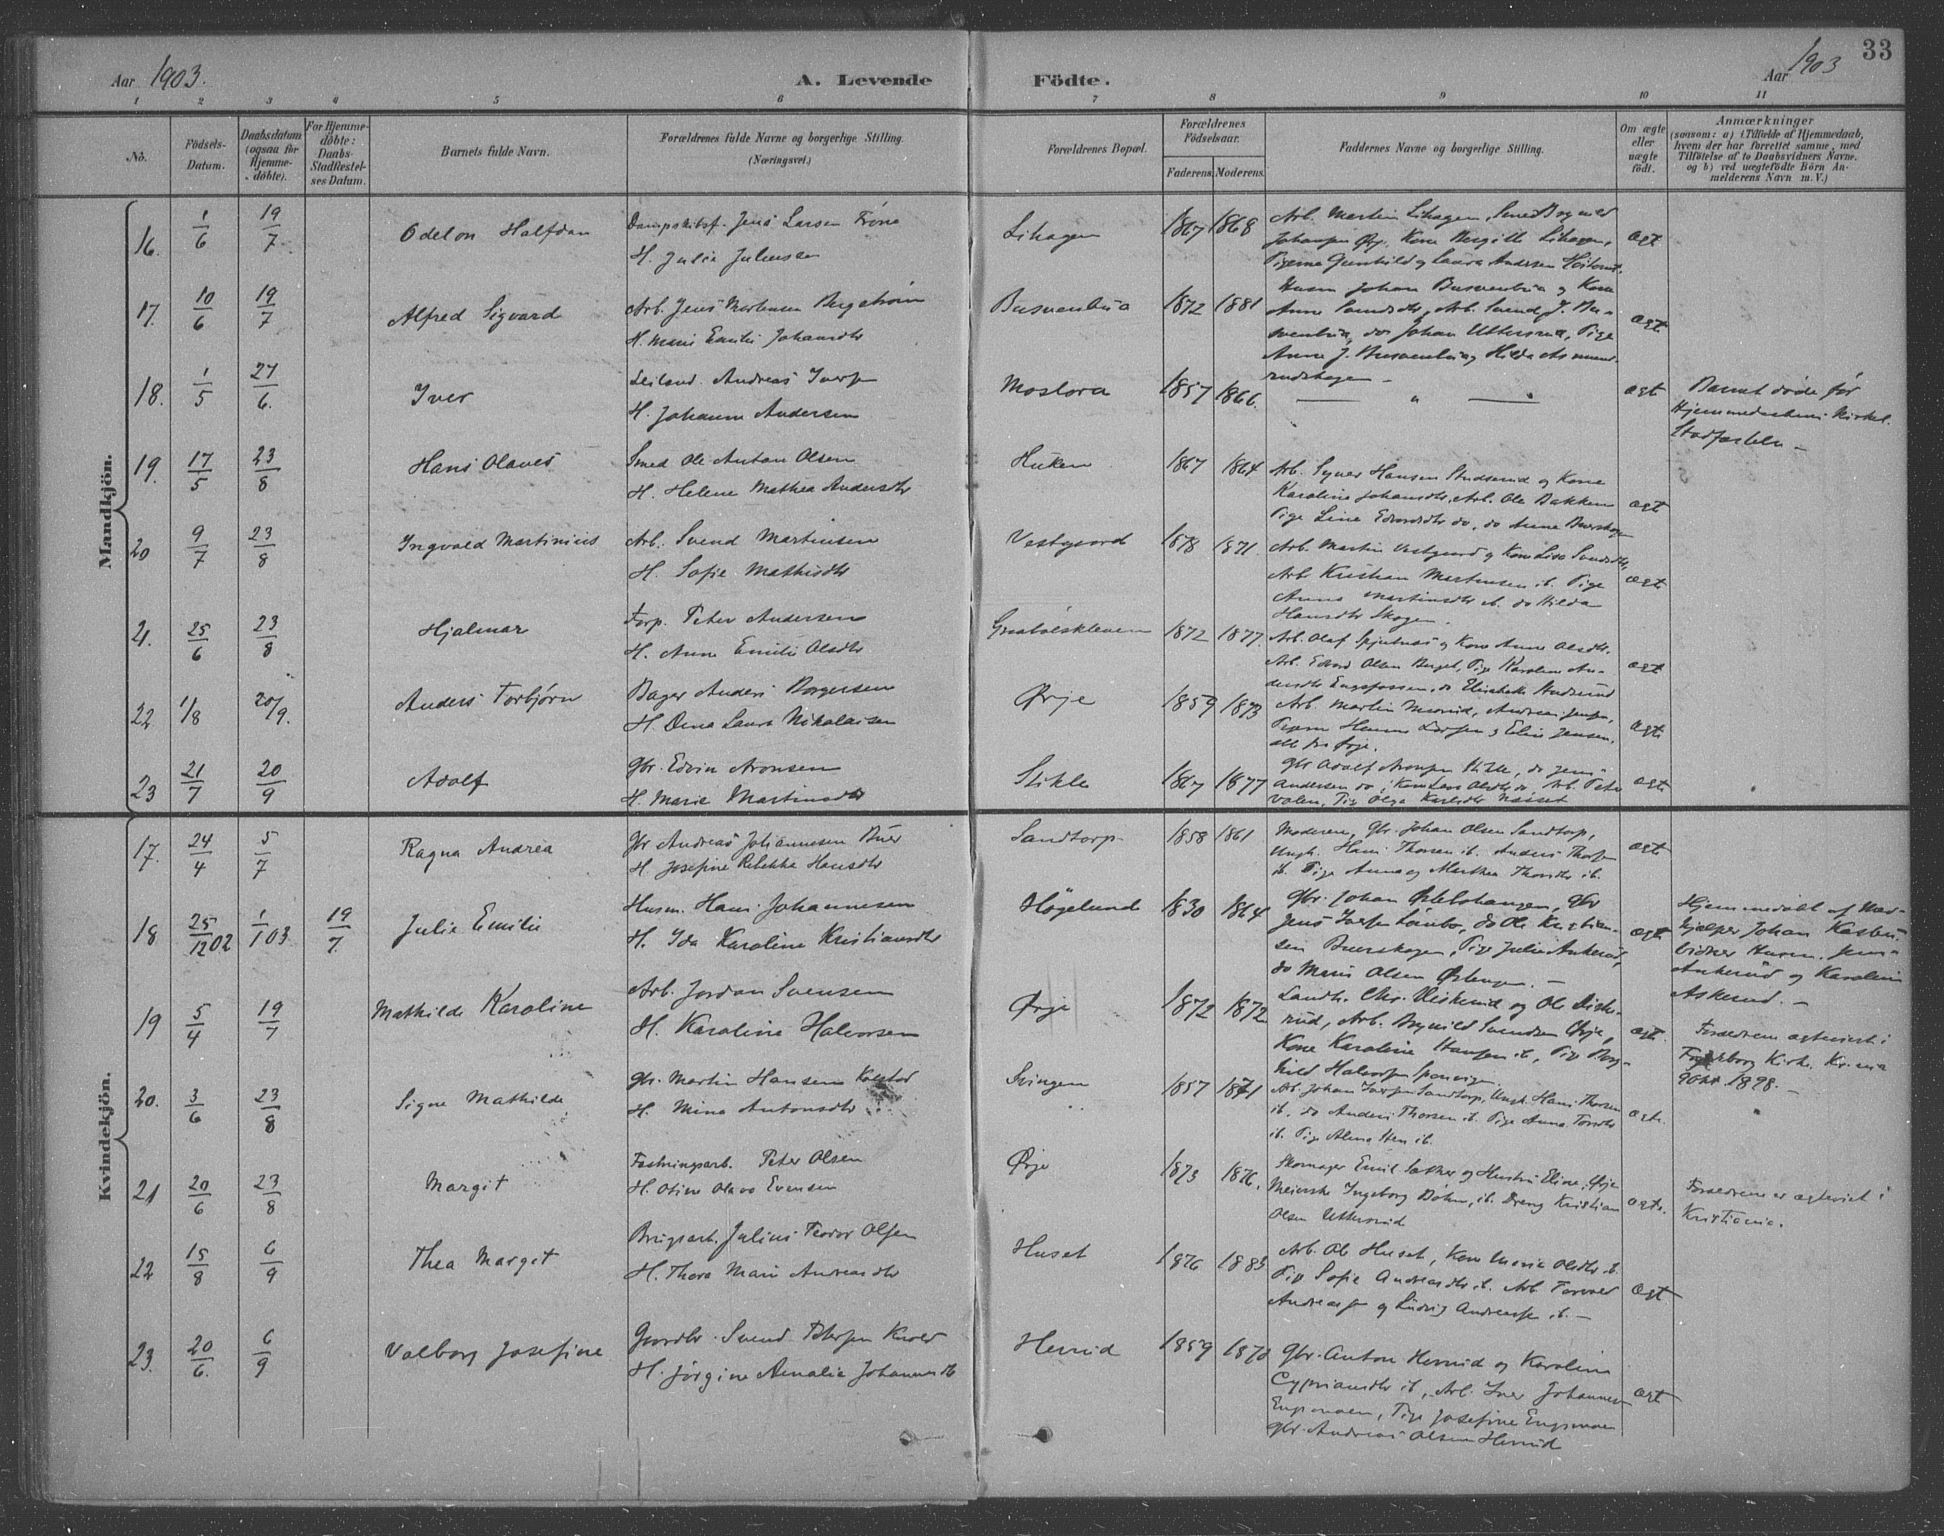 Aar 1903.
A. Levende Födte.
Aar 1903
33
1 2 3 4 5 6 7 8 9 10 11
No.
Födsels-
Datum.
Daabsdatum
(ogsaa for
Hjemme-
döbte).
For Hjemme-
döbte:
Daabs-
Stadfæstel-
ses Datum.
Barnets fulde Navn.
Forældrenes fulde Navne og borgerlige Stilling.
(Næringsvei.)
Forældrenes Bopæl.
Forældrenes
Födselsaar.
Faderens. Moderens.
Faddernes Navne og borgerlige Stilling.
Om ægte
eller
uægte
födt.
Anmærkninger
(saasom: a) i Tilfælde af Hjemmedaab,
hvem der har forrettet samme, med
Tilföielse af to Daabsvidners Navne.
og b) ved uægtefödte Börn An-
melderens Navn m. V.)
Mandkjön.
16. 1/6 19/7 Odelon Halfdan
Jens Larsen
H. Julie Julensen
Lihagen 1867 1868
Arb. Martin Lihagen,
Johansen Ørje, Kone Bergitte Lihagen,
Pigerne Gunhild og Laura Andersen
ægt
17. 10/6 19/7 Alfred Sigvard
Arb. Jens Mortensen Bergstrøm
H. Marie Emilie Johansdtr
Busvenbua 1872 1881
Husm Johan Busvenbua og Kone
Anne Svendsdtr, Arb. Svend J. Bu-
svenbua, do Johan Uttersrud, Pige
Anne J. Busvenbua, Hilda
ægt.
18. 1/5 27/6. Iver
Leiland. Andreas Iversen
H. Johanne Andersen
Moslora 1857 1866.
— „ —
ægt
Barnet døde før
Hjemmedaabens kirkel.
Stadfæstelse —
19. 17/5 23/8 Hans Olaves
Smed Ole Anton Olsen
H. Helene Mathea Andersdtr
Huken 1867 1864
Arb. Syver Hansen Studsrud og Kone
Karoline Johansdtr, Arb. Ole Bakken
Pige Line Edvardsdtr do, do Anne Buerskogen
ægt
20 9/7 23/8 Ingvald Martinius
Arb. Svend Martinsen
H. Sofie Mathisdtr
Vestgaard 1878 1871
Arb. Martin Vestgaard og Kone Lisa Svendsdtr,
Arb Kristian Martinsen ib. Pige
Anna Martinsdtr ib. do Hilda
Hansdtr Skogen.
ægt
21. 25/6 23/8 Hjalmar
Torp. Peter Andersen
H. Anne Emilie Olsdtr
1872 1877.
Arb. Olaf og Kone Anne Olsdtr.
Arb. Edvard Olsen Berget, Pige Karoline An-
dersdtr Engsfossen, do Elisabeth Studsrud
ægt
22 1/8 20/9. Anders Torbjørn
Bager Anders Borgersen
H. Dina Laura Nikolaisen
Ørje 1859 1873
Arb. Martin Moerud, Andreas Jensen,
Pigerne Hanna Larsen og Elise Jensen,
alle fra Ørje.
ægt.
23 21/7 20/9 Adolf
Gbr. Edvin Aronsen
H. Marie Martinsdtr
Stikle 1867 1877
Gbr Adolf Aronsen Stikle, do Jens
Andersen do, Kone Olsdtr do, Arb. Peter
Volen, Pige Olga Karlsdtr Næsset
ægt.
Kvindekjön.
17. 24/4 5/7 Ragna Andrea
Gbr Andreas Johannesen Buer
H. Josefine Rebekka Hansdtr
Sandtorp 1858 1861
Moderen, Gbr. Johan Olsen Sandtorp,
Ungk. Hans Thorsen ib. Anders Thorsen
ib. Pige Anna og Marthea Thorsdtr ib.
ægt.
18 25/12 02 1/1 03 19/7 Julie Emilie
Husm. Hans Johannesen
H. Ida Karoline Kristiansdtr
Høgelund 1830 1864
Gbr. Johan, Gbr
Jens Iversen, do Ole Kristian-
sen Buerskogen, Pige Julie Ankerud,
do Marie Olsen Østengen. —
ægt.
Hjemmedøbt af
hjælper Johan
vidner Husm. Jens
Ankerud og Karoline
Askerud. —
19 5/4 19/7 Mathilde Karoline
Arb. Jordan Svensen
H. Karoline Halvorsen
Ørje 1872 1872
Landh. Chr. og Ole
rud, Arb. Svendsen Ørje,
Kone Karoline Hansen ib, Pige Borg-
hild Halvorsen
ægt.
Forældrene ægteviet i
Fagerborg Kirke Kr.ania
9 Okt 1898. —
20. 3/6 23/8 Signe Mathilde
Gbr. Martin Hansen Kolstad
H. Mina Antonsdtr
Svingen 1857 1871
Arb. Johan Iversen Sandtorp, Ungk. Hans Thorsen
ib. do Anders Thorsen ib. Pige Anna Torsdtr
ib. Pige Alma ib.
ægte.
21 20/6 23/8 Margit
Fæstningsarb. Peter Olsen
H. Otine Olava Evensen
Ørje 1873 1876.
Skomager Emil Sæther og Hustru Eline, Ørje
Meierske Ingeborg ib. Dreng Kristian
Olsen Uttersrud
ægte.
Forældrene er ægteviet i
Kristiania.
22 15/8 6/9 Thea Margit
Brugsarb. Julius Teodor Olsen
H. Thora Marie Andreasdtr
Huset 1876 1883
Arb. Ole Huset, Kone Maria Olsdtr ib.
Pige Sofie Andreasdtr ib. Arb Torvald
Andreassen og Ludvig Andreassen ib. —
ægt
23. 20/6. 6/9 Valborg Josefine
Gaardbr. Svend Petersen
H. Jørgine Amalie Johannesdtr
Herrud 1859 1870
Gbr. Anton Herrud og Karoline
Cypriansdtr ib, Arb. Iver Johannes
Engsmoen, Pige Josefine Engsmoen
Gbr. Andreas Olsen Herrud
ægt